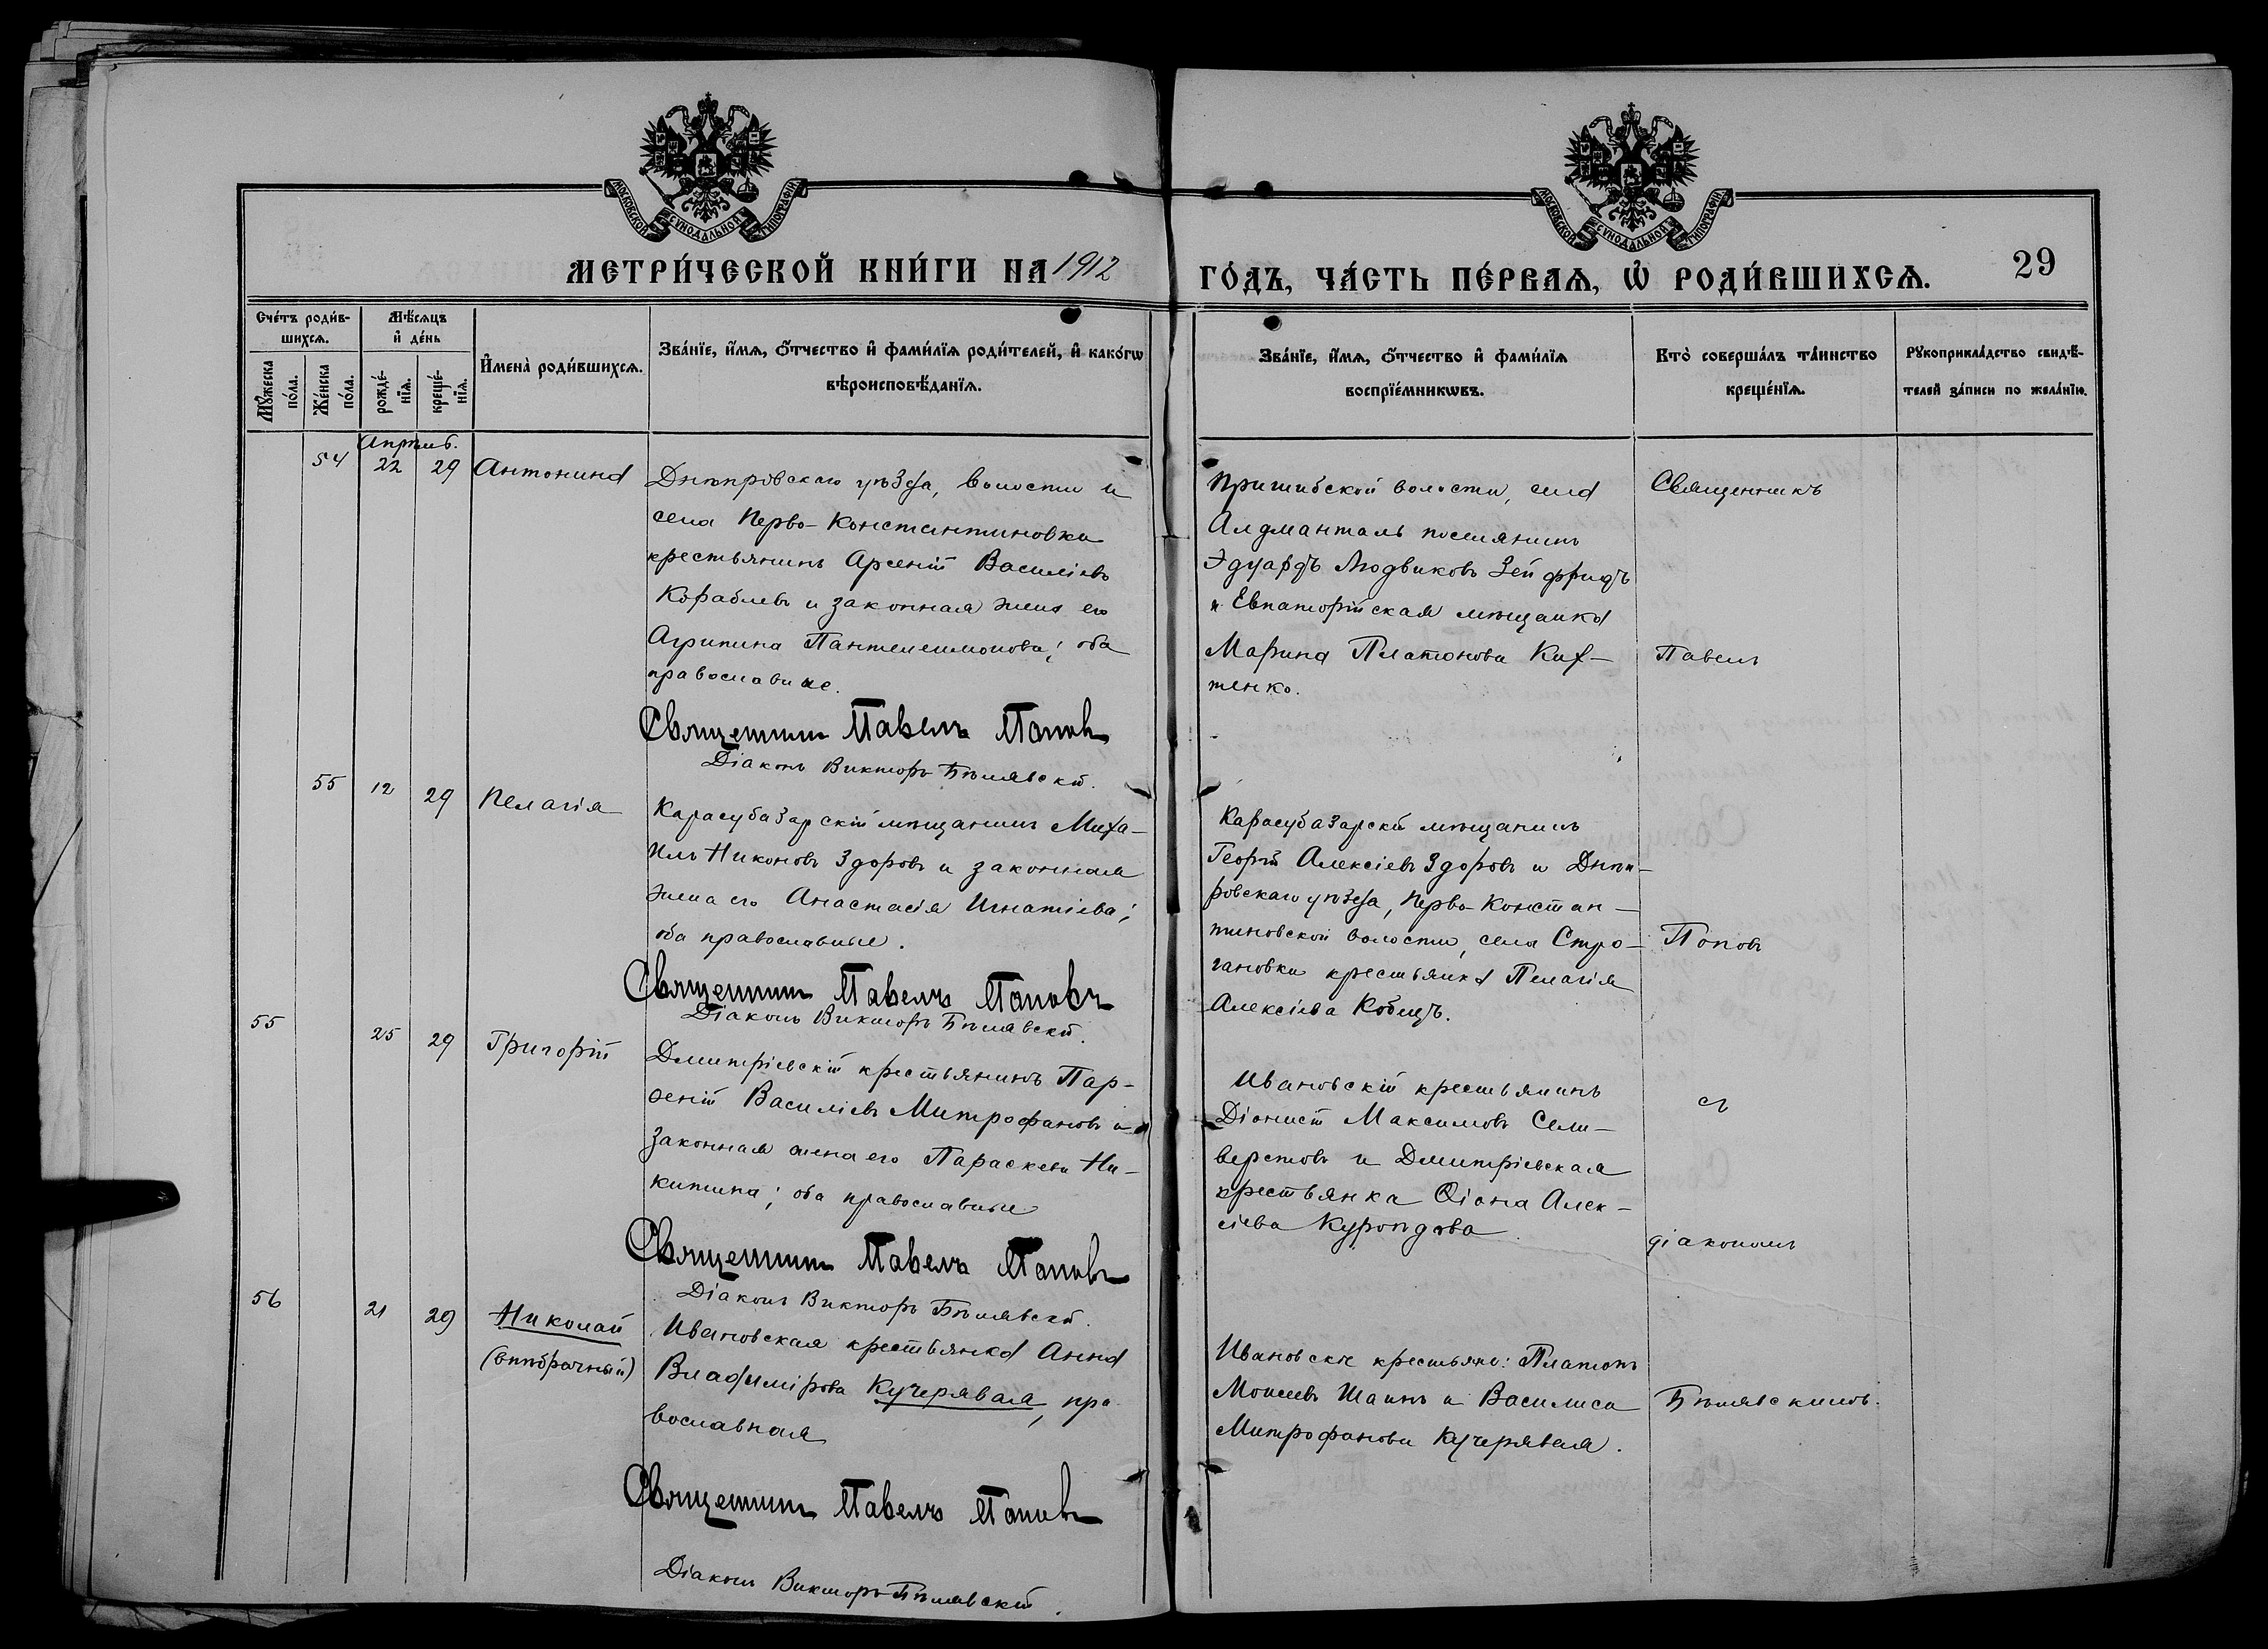 МОСКОВСКОЙ СѴНОДАЛЬНОЙ ТИПОГРАФІИ
МОСКОВСКОЙ СѴНОДАЛЬНОЙ ТИПОГРАФІИ
МЕТРИ́ЧЕСКОЙ КНИ́ГИ НА 1912
ГО́ДЪ, ЧА́СТЬ ПЕ́РВАѦ, Ѡ҆ РОДИ́ВШИХСѦ.
29
Сче́тъ роди́в-
шихсѧ.
Мꙋ́жеска
по́ла.
Же́нска
по́ла.
Мѣ́сѧцъ
и҆ де́нь
рожде́-
нїѧ.
креще́-
нїѧ.
И҆мена̀ роди́вшихсѧ.
Зва́нїе, и҆́мѧ, ѻ҆́тчество и҆ фами́лїѧ роди́телей, и҆ како́гѡ
вѣроисповѣ́данїѧ.
Зва́нїе, и҆́мѧ, ѻ҆́тчество и҆ фами́лїѧ
воспрїе́мникѡвъ.
Кто̀ соверша́лъ та́инство
креще́нїѧ.
Рꙋкоприкла́дство свидѣ́-
телей за́писи по жела́нїю.
Апрѣль.
54 22 29 Антонина
Днѣпровскаго уѣзда, волости и
села Перво-Константиновки
крестьянинъ Арсеній Василіевъ
Кораблевъ и законная жена его
Агрипина Пантелеимонова; оба
православные.
Священникъ Павелъ Поповъ
Діаконъ Викторъ Бѣлявскій.
Пришибской волости, села
Алдманталь поселянинъ
Эдуардъ Людвиковъ Зейфридъ
и Евпаторійская мѣщанка
Марина Платонова Ких-
тенко.
Священникъ
Павелъ
55 12 29 Пелагія
Карасубазарскій мѣщанинъ Миха-
илъ Никоновъ Здоровъ и законная
жена его Анастасія Игнатіева;
оба православные.
Священникъ Павелъ Поповъ
Діаконъ Викторъ Бѣлявскій.
Карасубазарскій мѣщанинъ
Георгій Алексіевъ Здоровъ и Днѣп-
ровскаго уѣзда, Перво-Констан-
тиновской волости, села Стро-
гановки крестьянка Пелагія
Алексіева Кобецъ.
Поповъ
55 25 29 Григорій
Дмитріевскій крестьянинъ Пар-
ѳеній Василіевъ Митрофановъ и
законная жена его Параскева Ни-
китина; оба православные
Священникъ Павелъ Поповъ
Діаконъ Викторъ Бѣлявскій.
Ивановскій крестьянинъ
Діонисій Максимовъ Сели-
верстовъ и Дмитріевская
крестьянка Ѳіона Алек-
сіева Куропдова.
съ
діакономъ
56 21 29 Николай
(внѣбрачный)
Ивановская крестьянка Анна
Владимірова Кучерявая, пра-
вославная
Священникъ Павелъ Поповъ
Діаконъ Викторъ Бѣлявскій.
Ивановскіе крестьяне: Платонъ
Моисеевъ Шаинъ и Василиса
Митрофанова Кучерявая.
Бѣлявскимъ.